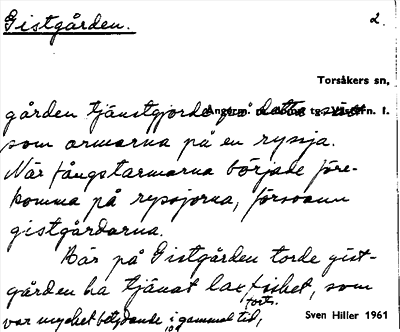 Gistgården.
2.
Torsåkers sn,
gården tjänstgjorde på detta sätt
som armarna på en ryssja.
När fångstarmarna började före-
komma på ryssjorna, försvann
gistgårdarna.
Här på Gistgården torde gist-
gården ha tjänat laxfisket, som
var mycket betydande i gammal tid,
forts.
Sven Hiller 1961